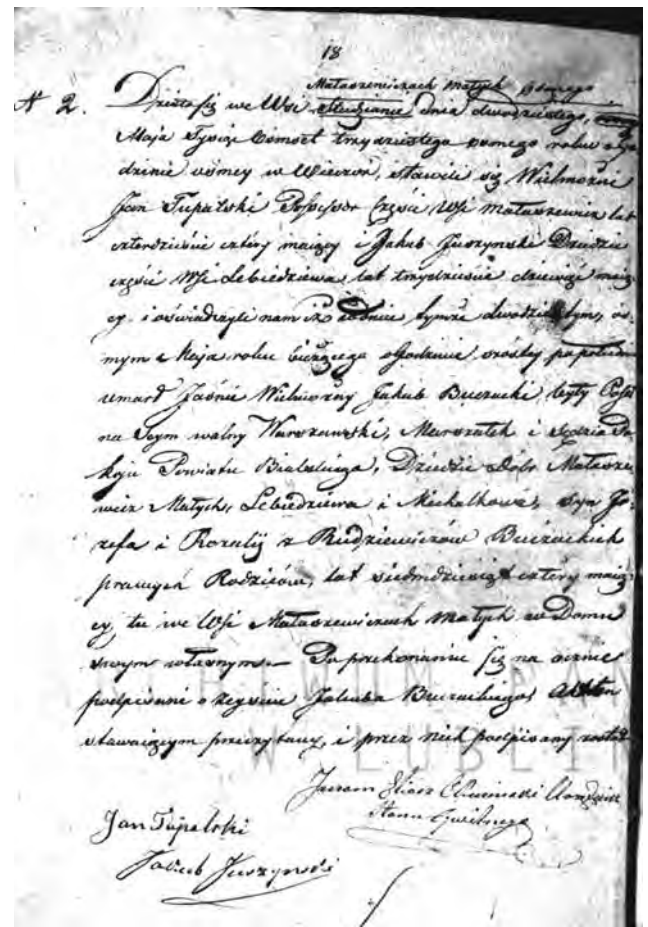 18
Małaszewiczach Małych ósmego
N 2. Działo się we Wsi Studzianie dnia dwudziestego,
Maja Tysiąc Ośmset trzydziestego ósmego roku o go
dzinie ósmey w Wieczór, stawili się Wielmożni
Jan Tupalski Possessor Części Wsi Małaszewicz lat
czterdzieście cztéry maiący i Jakub Juszynski Dziedzic
części Wsi Lebiedziewa, lat trzydzieście dziewięć maią
cy i oświadczyli nam iż w dniu tymże dwudziestym, ós-
mym Maja roku bieżącego o godzinie szóstey po południu
umarł Jaśnie Wielmożny Jakub Buczacki, były Poseł
na Seym walny Warszawski, Marszałek i Sędzia Po
koju Powiatu Bialskiego, Dziedzic Dóbr Małasze
wicz Małych, Lebiedziewa i Michałkowa, syn Jó-
zefa i Rozalij z Rudziewiczów Buczackich
prawych Rodziców, lat siedmdziesiąt cztéry maią
cy tu we Wsi Małaszewiczach Małych w Domu
swym własnym. — Po przekonaniu się na ocznie
podpisani o zeyściu Jakuba Buczackiego, Akt ten
stawaiącym przeczytany, i przez nich podpisany został
ARCHIWUM PAŃ
W LUBLIN
Stanu Cywilnego
Jan Tupalski
Jakub Juszynski